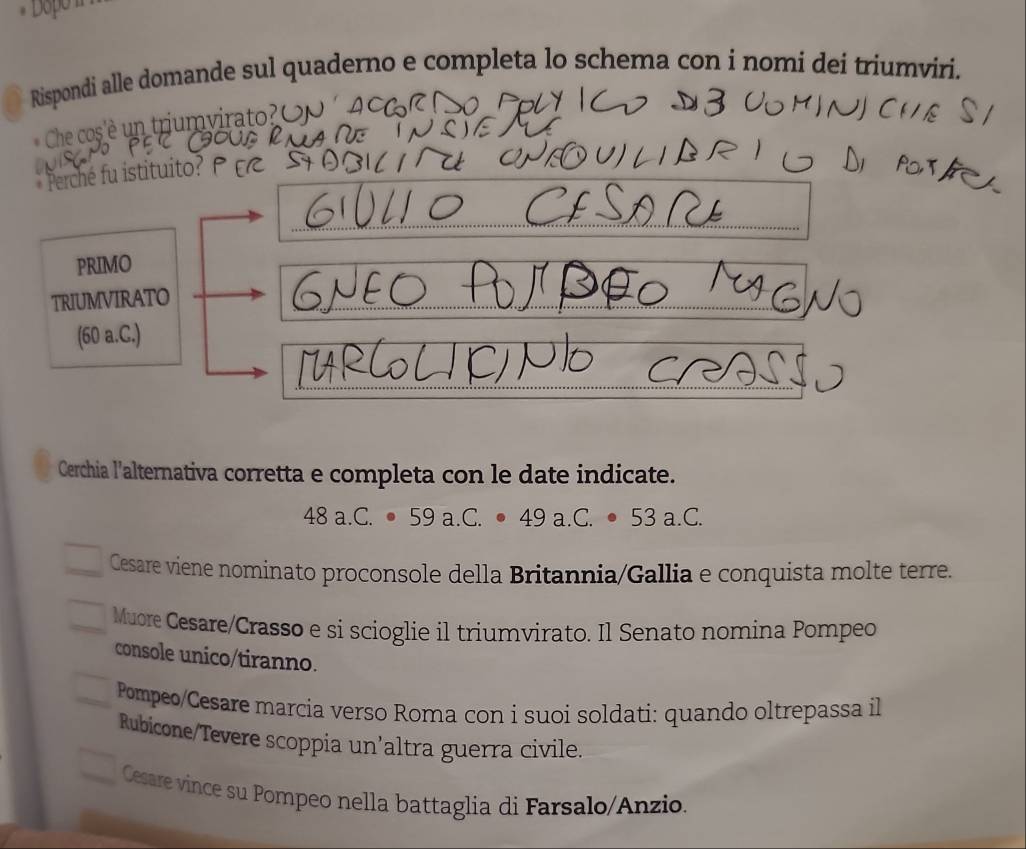 • Dopo il
Rispondi alle domande sul quaderno e completa lo schema con i nomi dei triumviri.
• Che cos'è un triumvirato? UN' ACCORDO POLYICO DI 3 UOMINI CHE SI
UNISGNO PER GOUERNARE INSIEME
• Perché fu istituito? PER STABILIRE UN EQUILIBRIO DI POTERE
GIULIO CESARE
PRIMO
TRIUMVIRATO
(60 a.C.)
GNEO POMPEO MAGNO
MARCO LICINIO CRASSO
Cerchia l'alternativa corretta e completa con le date indicate.
48 a.C. • 59 a.C. • 49 a.C. • 53 a.C.
Cesare viene nominato proconsole della Britannia/Gallia e conquista molte terre.
Muore Cesare/Crasso e si scioglie il triumvirato. Il Senato nomina Pompeo
console unico/tiranno.
Pompeo/Cesare marcia verso Roma con i suoi soldati: quando oltrepassa il
Rubicone/Tevere scoppia un'altra guerra civile.
Cesare vince su Pompeo nella battaglia di Farsalo/Anzio.